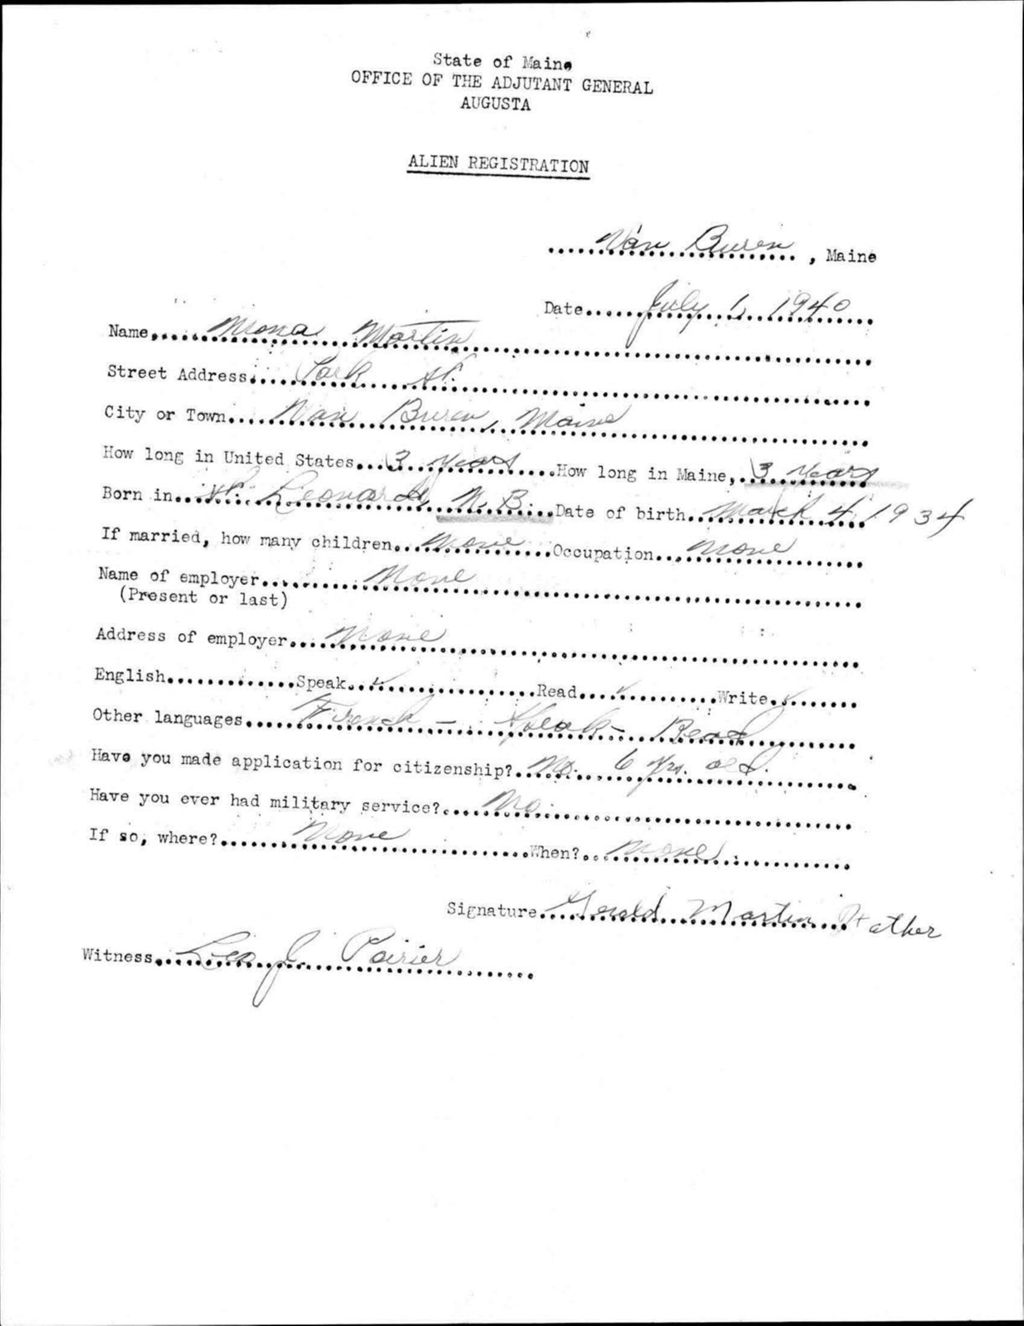 State of Maine
OFFICE OF THE ADJUTANT GENERAL
AUGUSTA
ALIEN REGISTRATION
Van Buren, Maine
Date July 1, 1940
Name Mona Martin
Street Address Park St.
City or Town Van Buren, Maine
How long in United States 3 Years How long in Maine, 3 Years
Born in St. Leonards, N.B. Date of birth March 4, 1934
If married, how many children None Occupation None
Name of employer None
(Present or last)
Address of employer None
English Speak ✓ Read ✓ Write ✓
Other languages French - Speak - Read
Have you made application for citizenship? No. 6 yrs. old.
Have you ever had military service? No.
If so, where? None When? None
Signature Gerald Martin Father
Witness Leo J. Poirier